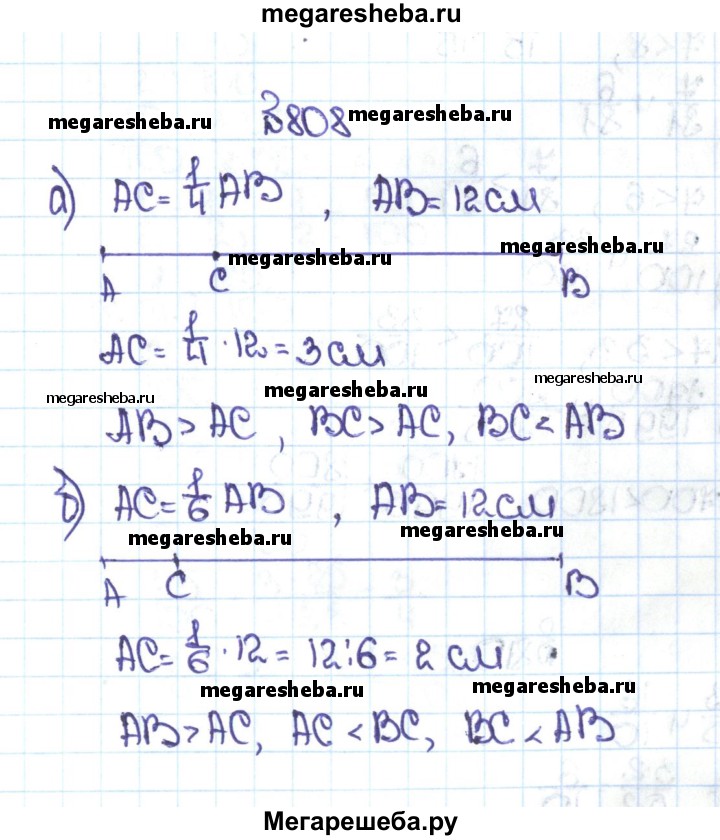 megaresheba.ru
№808
megaresheba.ru megaresheba.ru
а) AC = 1/4 AB , AB = 12 см
megaresheba.ru megaresheba.ru
A C B
AC = 1/4 · 12 = 3 см
megaresheba.ru megaresheba.ru megaresheba.ru
AB > AC , BC > AC, BC < AB
б) AC = 1/6 AB , AB = 12 см
megaresheba.ru megaresheba.ru
A C B
AC = 1/6 · 12 = 12:6 = 2 см
megaresheba.ru megaresheba.ru
AB > AC, AC < BC, BC < AB
Мегарешеба.ру